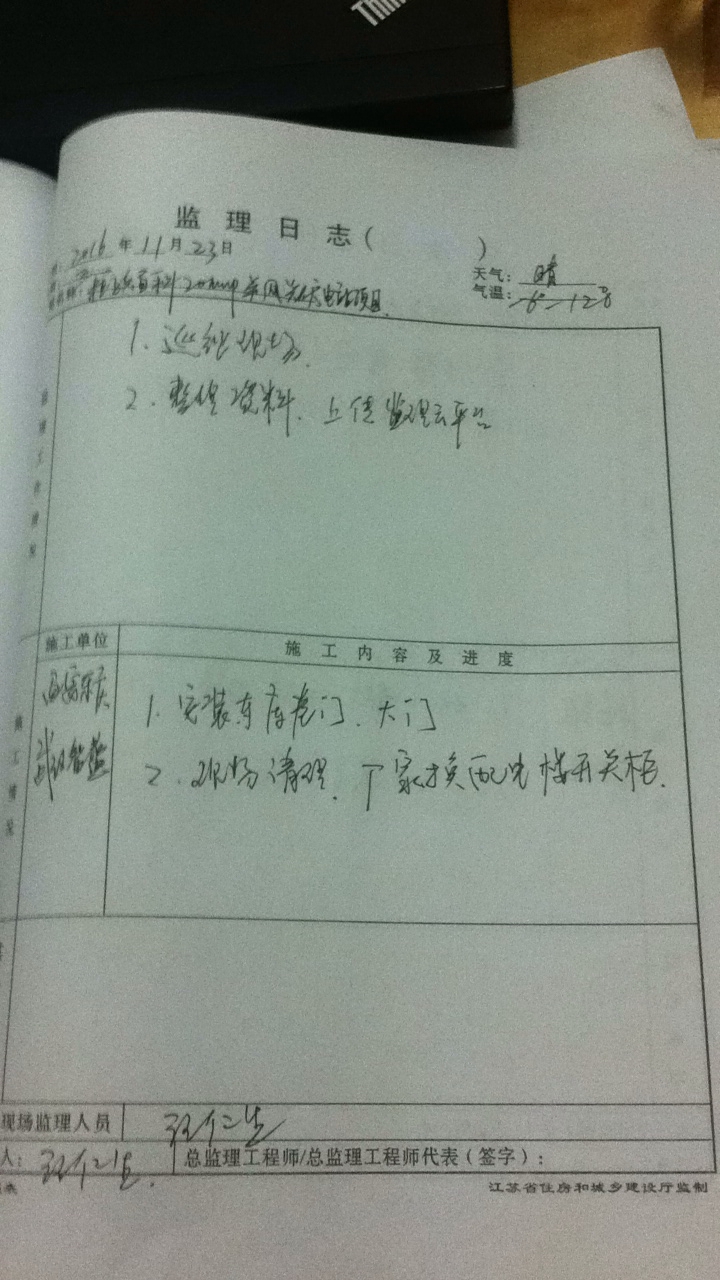 Thin
监理日志( )
2016年11月23日
天气: 晴
气温:
并网光伏电站项目
1. 巡视现场.
2. 整理资料、上传监理云平台
监理工作情况
施工单位
施工内容及进度
施工情况
1. 安装车库卷门、大门
2. 现场清理、厂家换配电楼开关柜.
现场监理人员
人:
总监理工程师/总监理工程师代表(签字):
江苏省住房和城乡建设厅监制